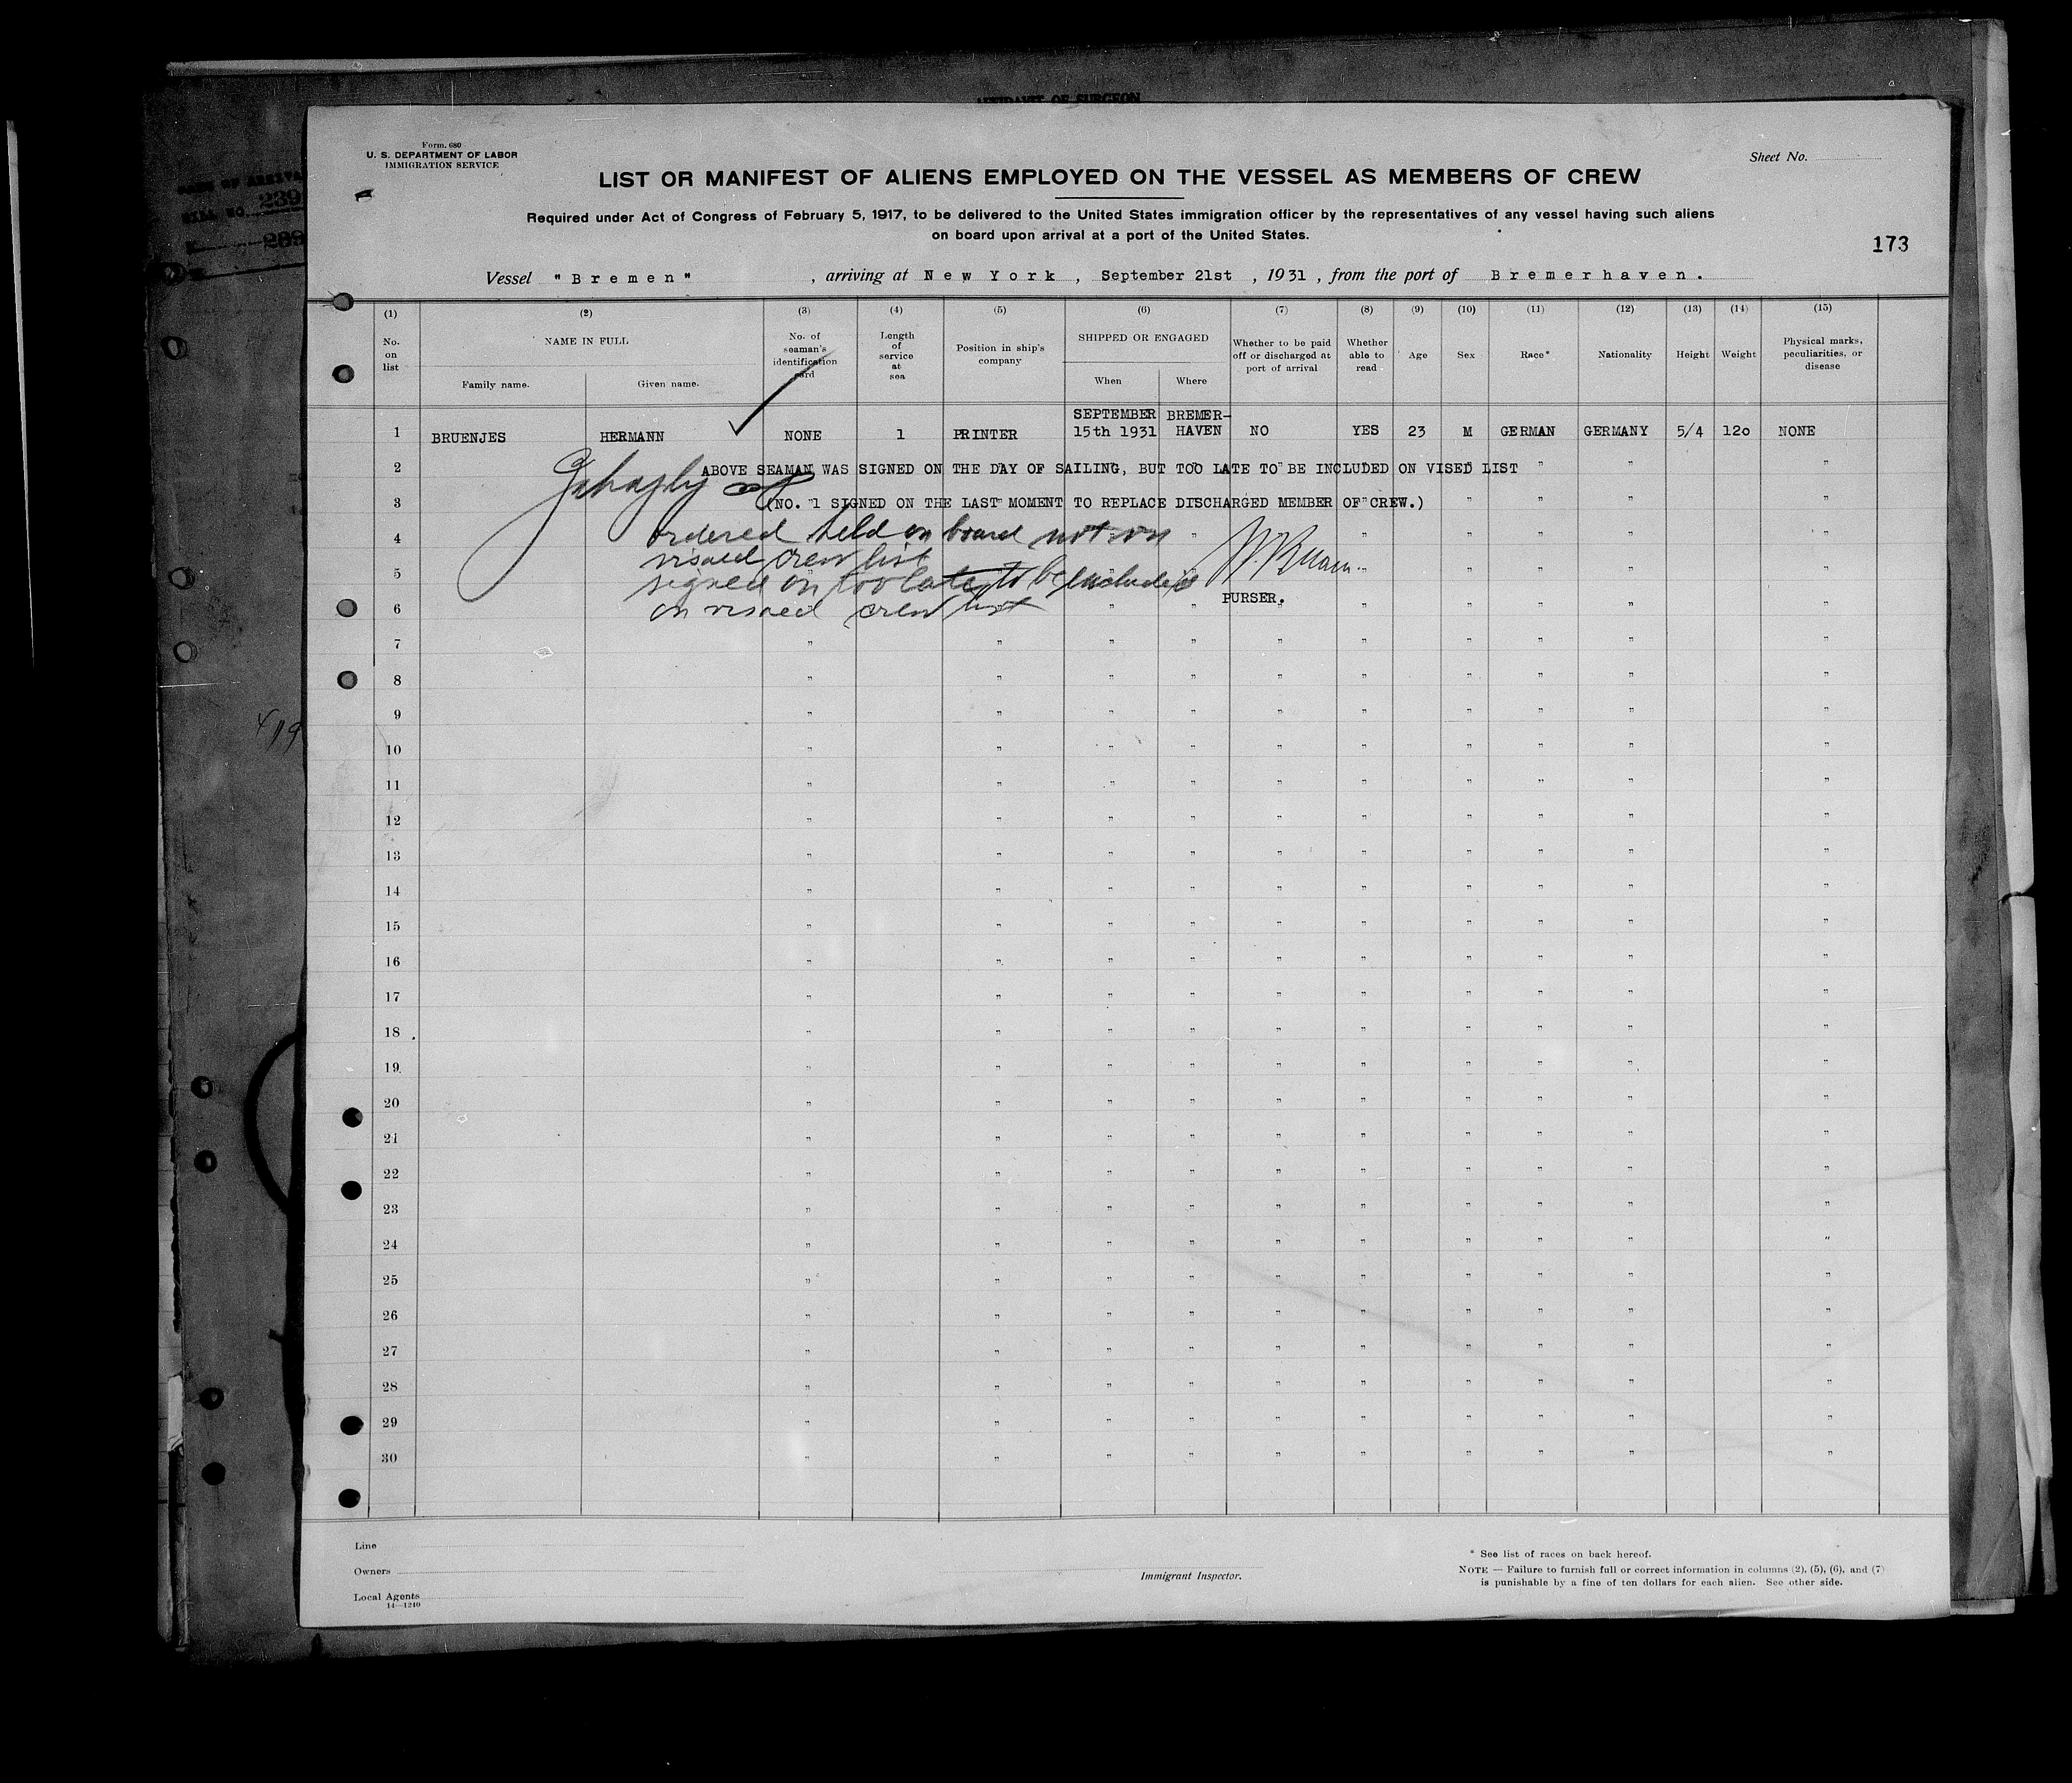 AFFIDAVIT OF SURGEON
Form. 680
U. S. DEPARTMENT OF LABOR
IMMIGRATION SERVICE
Sheet No.
LIST OR MANIFEST OF ALIENS EMPLOYED ON THE VESSEL AS MEMBERS OF CREW
Required under Act of Congress of February 5, 1917, to be delivered to the United States immigration officer by the representatives of any vessel having such aliens
on board upon arrival at a port of the United States.
173
239
289
Vessel "Bremen", arriving at New York, September 21st, 1931, from the port of Bremerhaven.
(1) (2) (3) (4) (5) (6) (7) (8) (9) (10) (11) (12) (13) (14) (15)
No. on list
NAME IN FULL
Family name. Given name.
No. of seaman's identification card
Length of service at sea
Position in ship's company
SHIPPED OR ENGAGED
When Where
Whether to be paid off or discharged at port of arrival
Whether able to read
Age
Sex
Race*
Nationality
Height
Weight
Physical marks, peculiarities, or disease
1 BRUENJES HERMANN NONE 1 PRINTER SEPTEMBER 15th 1931 BREMER-HAVEN NO YES 23 M GERMAN GERMANY 5/4 120 NONE
2 ABOVE SEAMAN WAS SIGNED ON THE DAY OF SAILING, BUT TOO LATE TO BE INCLUDED ON VISED LIST " " "
3 (NO. 1 SIGNED ON THE LAST MOMENT TO REPLACE DISCHARGED MEMBER OF CREW.) " " " "
4 ordered held on board not on
visaed crew list
5 signed on too late to be included
6 on visaed crew list
PURSER.
7 " " " " " " " " " "
8 " " " " " " " " " "
9 " " " " " " " " " "
10 " " " " " " " " " "
11 " " " " " " " " " "
12 " " " " " " " " " "
13 " " " " " " " " " "
14 " " " " " " " " " "
15 " " " " " " " " " "
16 " " " " " " " " " "
17 " " " " " " " " " "
18 " " " " " " " " " "
19 " " " " " " " " " "
20 " " " " " " " " " "
21 " " " " " " " " " "
22 " " " " " " " " " "
23 " " " " " " " " " "
24 " " " " " " " " " "
25 " " " " " " " " " "
26 " " " " " " " " " "
27 " " " " " " " " " "
28 " " " " " " " " " "
29 " " " " " " " " " "
30 " " " " " " " " " "
Line
Owners
Local Agents
14—1240
Immigrant Inspector.
* See list of races on back hereof.
NOTE — Failure to furnish full or correct information in columns (2), (5), (6), and (7)
is punishable by a fine of ten dollars for each alien. See other side.